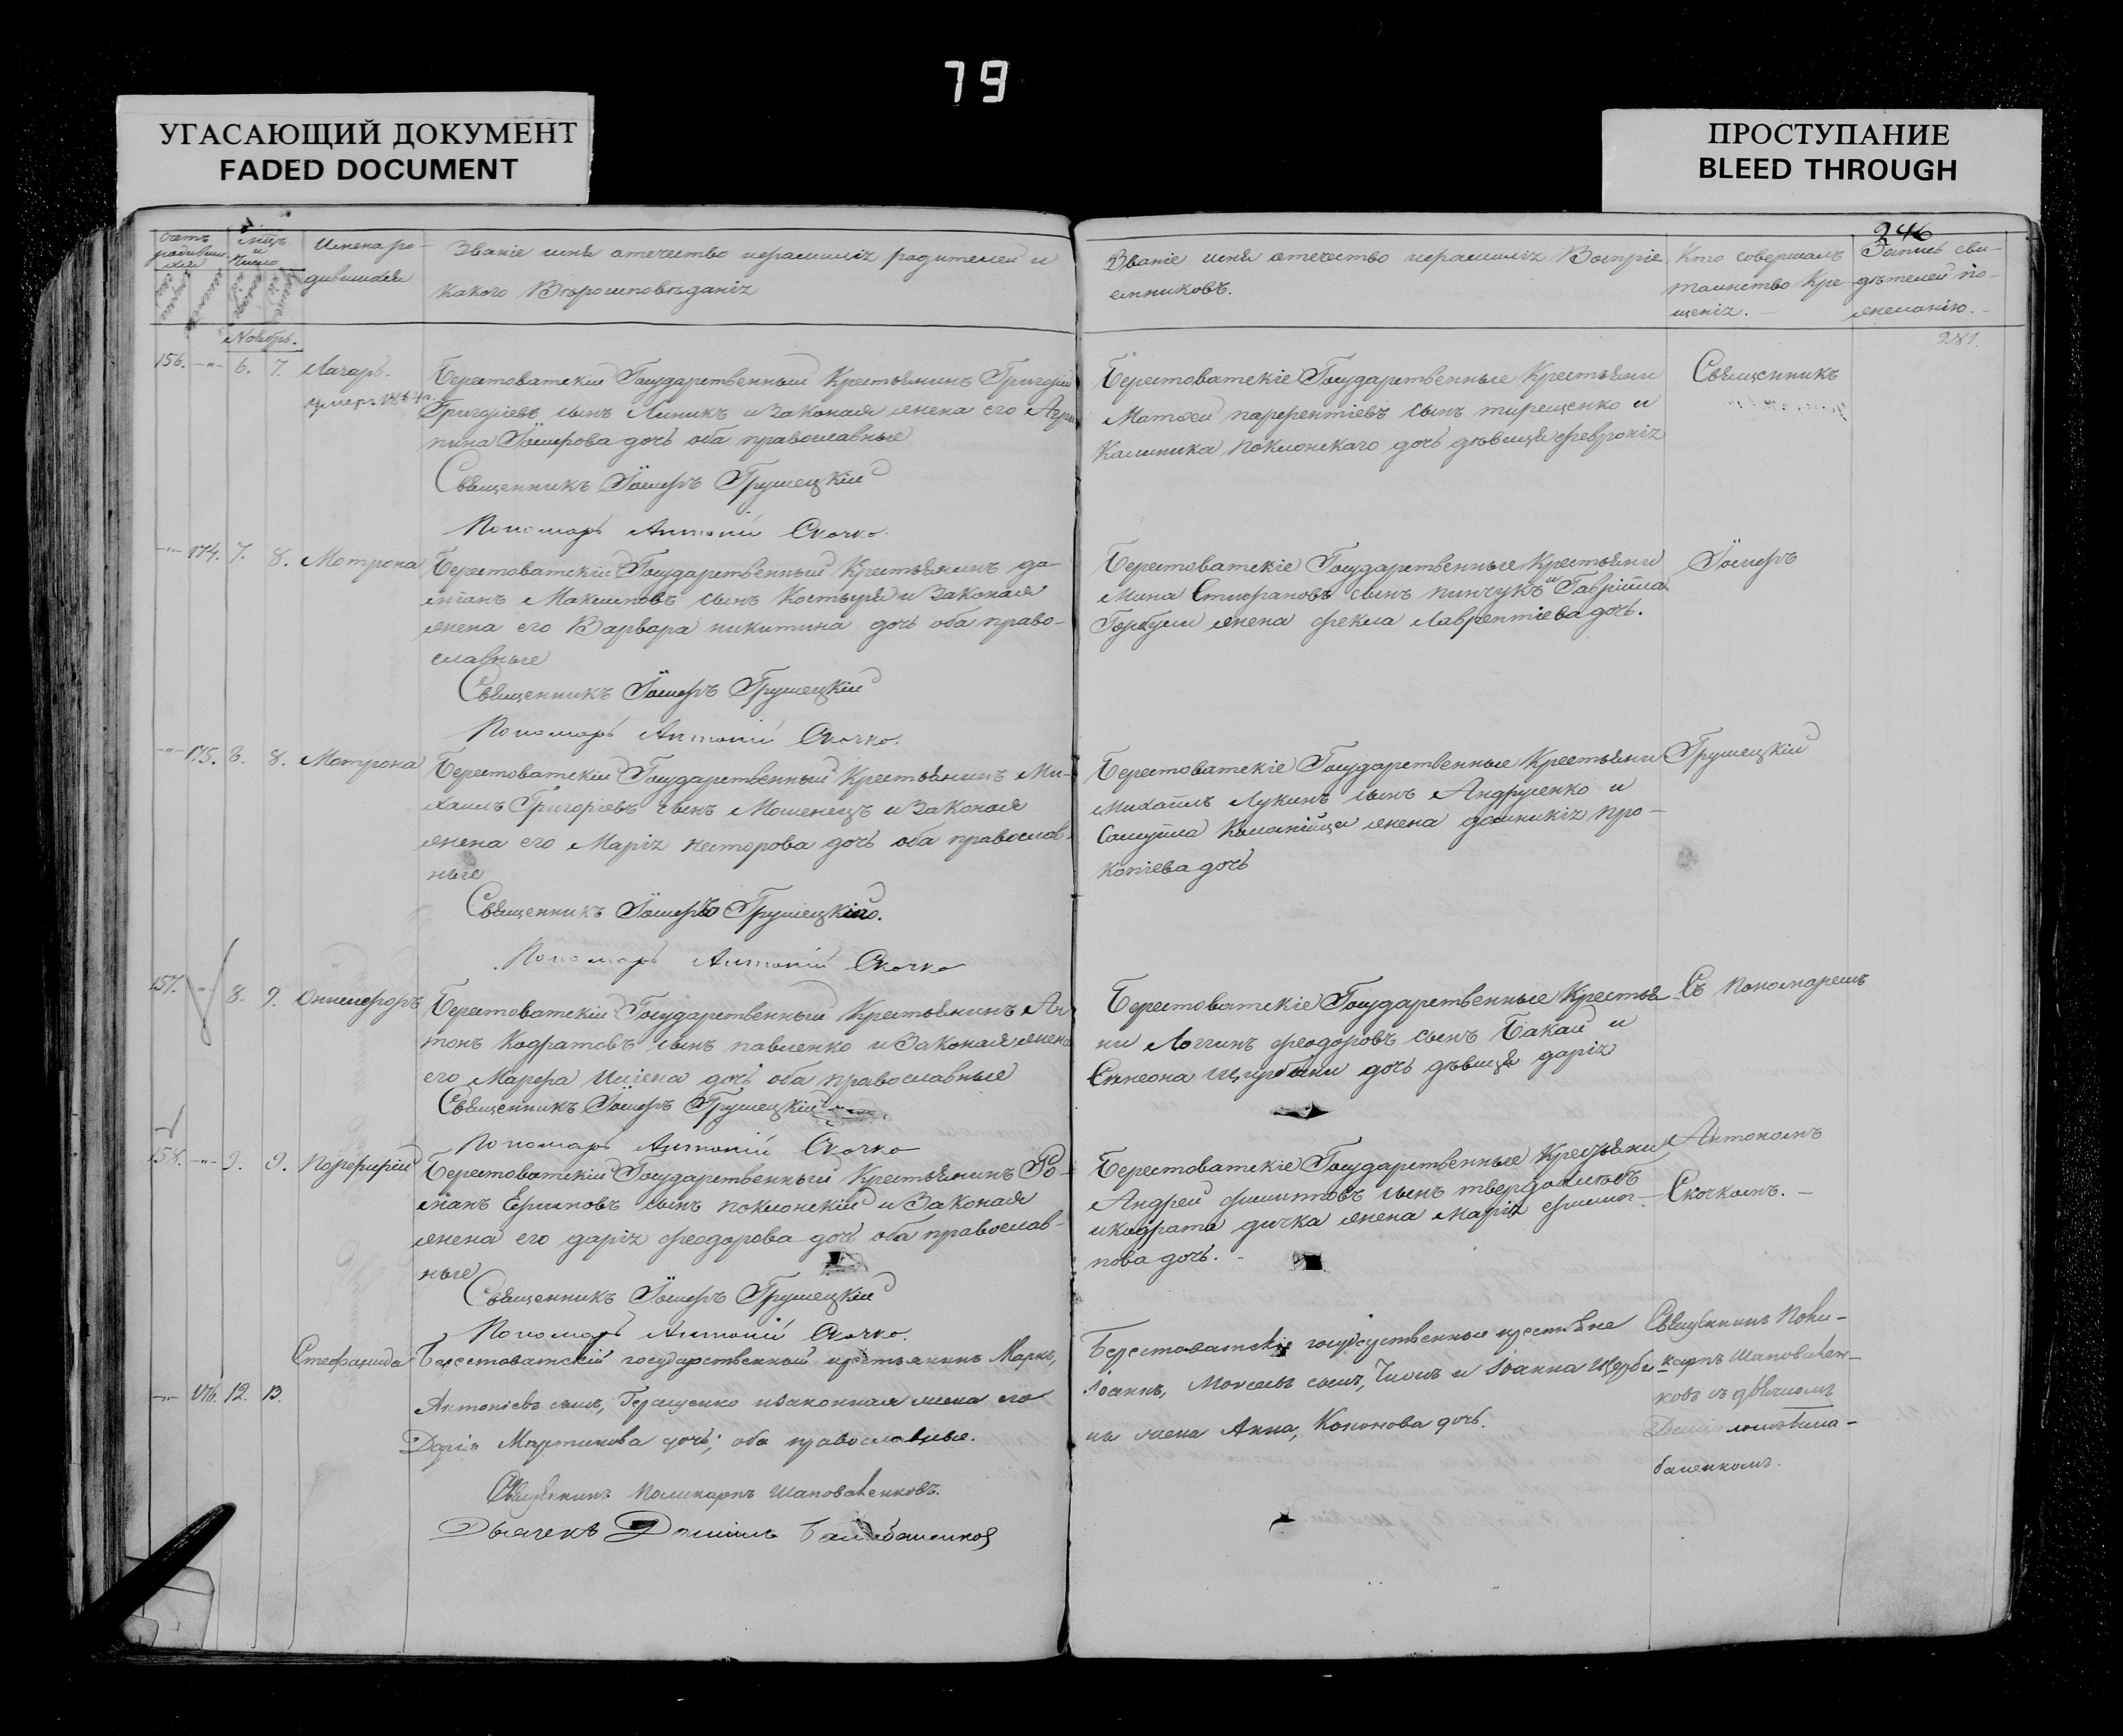 79
УГАСАЮЩИЙ ДОКУМЕНТ
FADED DOCUMENT
ПРОСТУПАНИЕ
BLEED THROUGH
246
Счетъ родивших-ся
Мѣц и число
Имена ро-
дившихся
Званіе имя отечество и фамилія родителей и
какого Вѣроисповѣданія
Званіе имя отечество и фамилія Воспріе
емниковъ.
Кто совершалъ
таинство Кре-
щенія.
Запись сви-
дѣтелей по
желанію.
281.
Ноябрь.
156. -"- 6. 7. Лазарь.
Берестоватскій Государственный Крестьянинъ Григорій
Григоріевъ сынъ Линикъ и Законая жена его Агри
пина Іосифова дочь оба православные
Священникъ Іосифъ Грушецкій
Пономарь Антоній Скочко.
Берестоватскіе Государственные Крестьяни
Матфей парфентіевъ сынъ тирещенко и
Калиника Поклонскаго дочь дѣвица февронія
Священникъ
-"- 174. 7. 8. Мотрона
Берестоватскій Государственный Крестьянинъ да-
міанъ Максимовъ сынъ Костыря и Законая
жена его Варвара никитина дочь оба право-
славные
Священникъ Іосифъ Грушецкій
Пономарь Антоній Скочко.
Берестоватскіе Государственные Крестьяни
Мина Стефановъ сынъ пинчукъ и Гавріила
Горбули жена фекла Лаврентіева дочь.
Іосифъ
-"- 175. 8. 8. Мотрона
Берестоватскій Государственный Крестьянинъ Ми-
хаилъ Григоріевъ сынъ Мошенецъ и Законая
жена его Марія несторова дочь оба православ-
ные
Священникъ Іосифъ Грушецкій.
Пономарь Антоній Скочко
Берестоватскіе Государственные Крестьяни
Михаилъ Лукинъ сынъ Андрусенко и
Самуила Коломійца жена домникія про-
копіева дочь
Грушецкій
157. -"- 8. 9. Онисифоръ
Берестоватскій Государственный Крестьянинъ Ан
тонъ Кодратовъ сынъ павленко и Законая жена
его Марфа Иліена дочь оба православные
Священникъ Іосифъ Грушецкій
Пономарь Антоній Скочко
Берестоватскіе Государственные Крестья
ни Логгинъ феодоровъ сынъ Бакай и
Симеона Щирбини дочь дѣвица дарія
Съ пономаремъ
158. -"- 9. 9. Порфирій
Берестоватскій Государственный Крестьянинъ Ро-
манъ Ефимовъ сынъ поклонскій и Законая
жена его дарія феодорова дочь оба православ-
ные
Священникъ Іосифъ Грушецкій
Пономарь Антоній Скочко.
Берестоватскіе Государственные Крестьяни
Андрей филиповъ сынъ твердохлѣбъ
и кодрата дичка жена марія филип-
пова дочь.
Антономъ
Скочкомъ.
-"- 176. 12. 13. Стефанида
Берестоватскій государственный крестьянинъ Маркъ,
Антоніевъ сынъ, Геращенко и законная жена его
Дарія Мартинова дочь; оба православные.
Священникъ Поликарпъ Шаповаленковъ.
Дьячекъ Даніилъ Балабаненков
Берестоватскіе государственные крестьяне
Іоаннъ, Моисеевъ сынъ, и Іоанна Щерби-
ны жена Анна, Кононова дочь.
Священникъ Поли-
карпъ Шаповален-
ковъ съ дьячкомъ
Даніиломъ Бала-
баненкомъ.